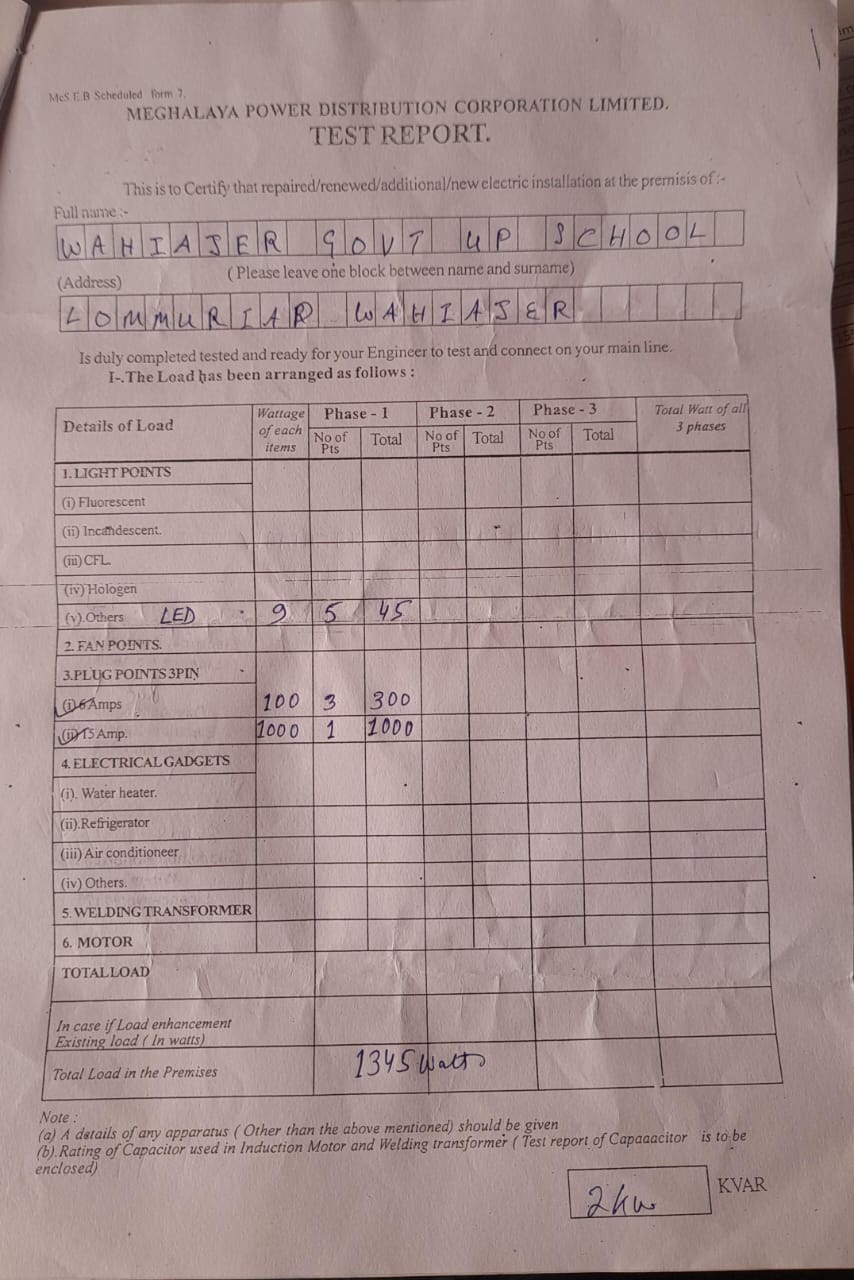 MeS E.B Scheduled form 7.
MEGHALAYA POWER DISTRIBUTION CORPORATION LIMITED.
TEST REPORT.
This is to Certify that repaired/renewed/additional/new electric installation at the premisis of :-
Full name :-
WAHIAJER GOVT UP SCHOOL
(Address) ( Please leave one block between name and surname)
LOMMURIAP WAHIAJER
Is duly completed tested and ready for your Engineer to test and connect on your main line.
I-.The Load has been arranged as follows :
Details of Load Wattage of each items Phase - 1 Phase - 2 Phase - 3 Total Watt of all 3 phases
No of Pts Total No of Pts Total No of Pts Total
1. LIGHT POINTS
(i) Fluorescent
(ii) Incandescent.
(iii) CFL.
(iv) Hologen
(v).Others LED 9 5 45
2. FAN POINTS.
3.PLUG POINTS 3PIN
(i) 6 Amps 100 3 300
(ii) 15 Amp. 1000 1 1000
4. ELECTRICAL GADGETS
(i). Water heater.
(ii).Refrigerator
(iii) Air conditioneer
(iv) Others.
5. WELDING TRANSFORMER
6. MOTOR
TOTAL LOAD
In case if Load enhancement
Existing load ( In watts)
Total Load in the Premises 1345 Watts
Note :
(a) A details of any apparatus ( Other than the above mentioned) should be given
(b).Rating of Capacitor used in Induction Motor and Welding transformer ( Test report of Capaaacitor is to be
enclosed)
2kw KVAR